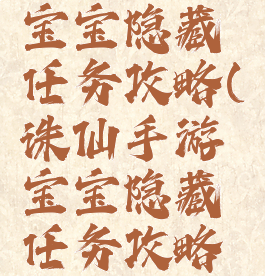 宝宝隐藏
任务攻略(
诛仙手游
宝宝隐藏
任务攻略